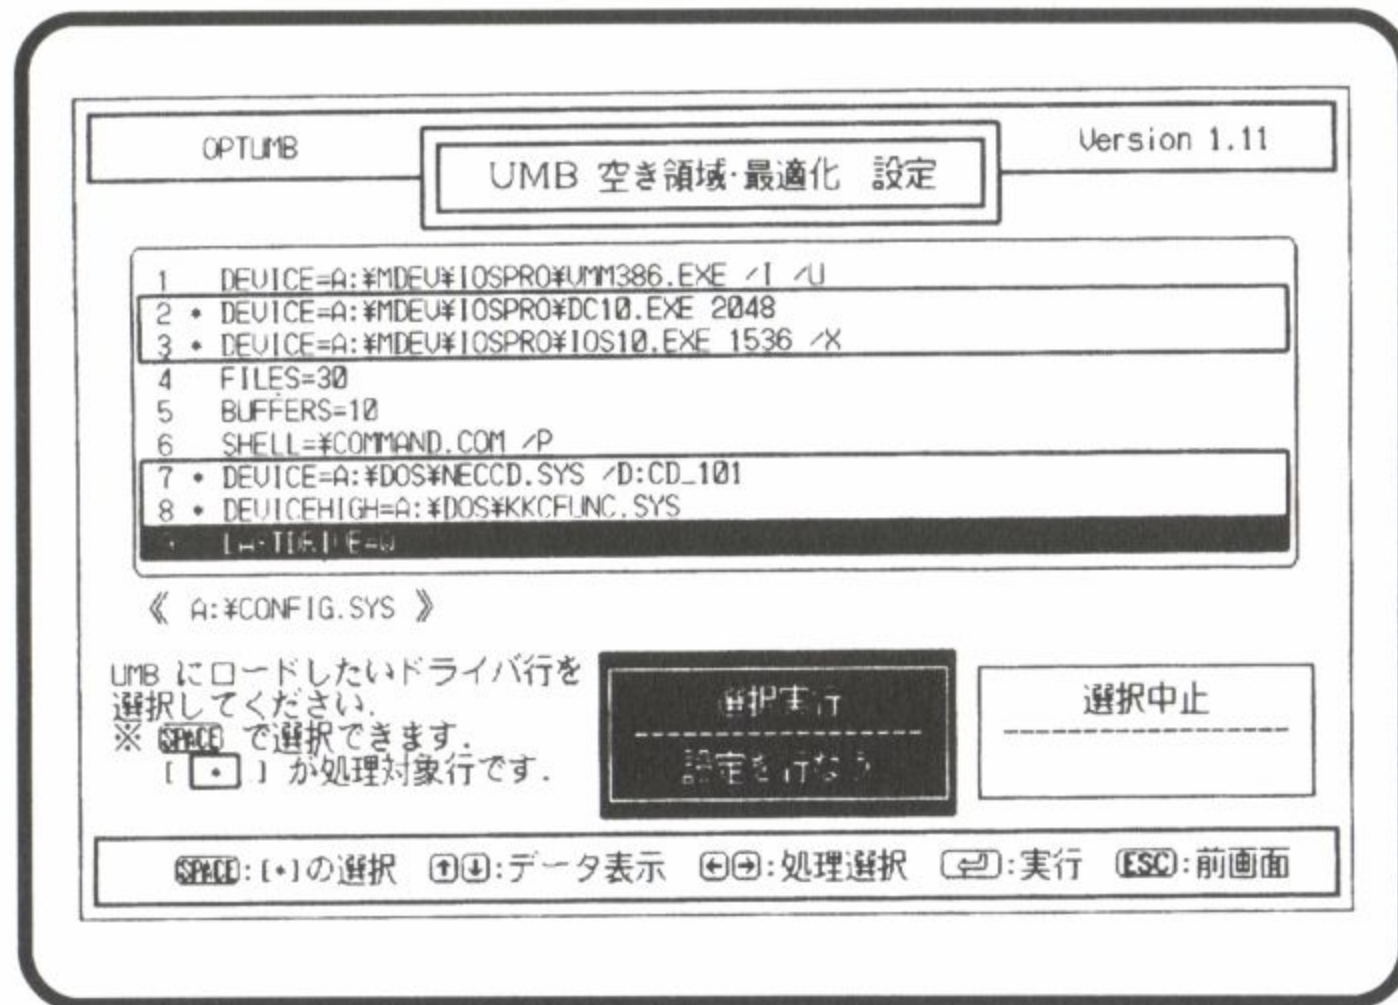 OPTUMB
UMB 空き領域・最適化 設定
Version 1.11
1 DEVICE=A:¥MDEV¥IOSPRO¥VMM386.EXE /I /U
2 • DEVICE=A:¥MDEV¥IOSPRO¥DC10.EXE 2048
3 • DEVICE=A:¥MDEV¥IOSPRO¥IOS10.EXE 1536 /X
4 FILES=30
5 BUFFERS=10
6 SHELL=¥COMMAND.COM /P
7 • DEVICE=A:¥DOS¥NECCD.SYS /D:CD_101
8 • DEVICEHIGH=A:¥DOS¥KKCFUNC.SYS
《 A:¥CONFIG.SYS 》
UMB にロードしたいドライバ行を
選択してください.
※ SPACE で選択できます.
[ • ] が処理対象行です.
選択実行
設定を行なう
選択中止
SPACE:[•]の選択 ↑↓:データ表示 ←→:処理選択 ⏎:実行 ESC:前画面